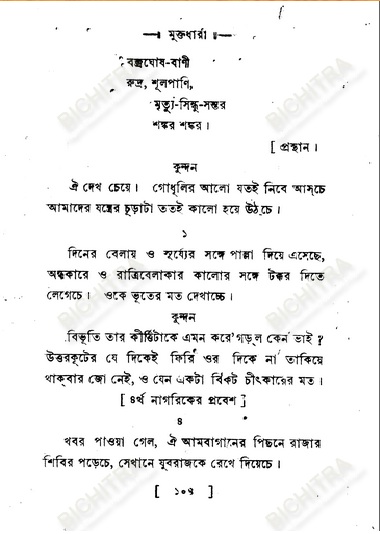 —॥ মুক্তধারা ॥—
বজ্রঘোষ-বাণী
রুদ্র, শূলপাণি,
মৃত্যু-সিন্ধু-সন্তর
শঙ্কর শঙ্কর।
[ প্রস্থান।
কুন্দন
ঐ দেখ চেয়ে। গোধূলির আলো যতই নিবে আস্‌চে
আমাদের যন্ত্রের চূড়াটা ততই কালো হয়ে উঠ্‌চে।
১
দিনের বেলায় ও সূর্য্যের সঙ্গে পাল্লা দিয়ে এসেছে,
অন্ধকারে ও রাত্রিবেলাকার কালোর সঙ্গে টক্কর দিতে
লেগেচে। ওকে ভূতের মত দেখাচ্চে।
কুন্দন
বিভূতি তার কীর্ত্তিটাকে এমন করে' গড়্‌ল কেন ভাই?
উত্তরকূটের যে দিকেই ফিরি ওর দিকে না তাকিয়ে
থাক্‌বার জো নেই, ও যেন একটা বিকট চীৎকারের মত।
[ ৪র্থ নাগরিকের প্রবেশ ]
৪
খবর পাওয়া গেল, ঐ আমবাগানের পিছনে রাজার
শিবির পড়েচে, সেখানে যুবরাজকে রেখে দিয়েচে।
[ ১০৪ ]
BICHITRA
BICHITRA
BICHITRA
BICHITRA
BICHITRA